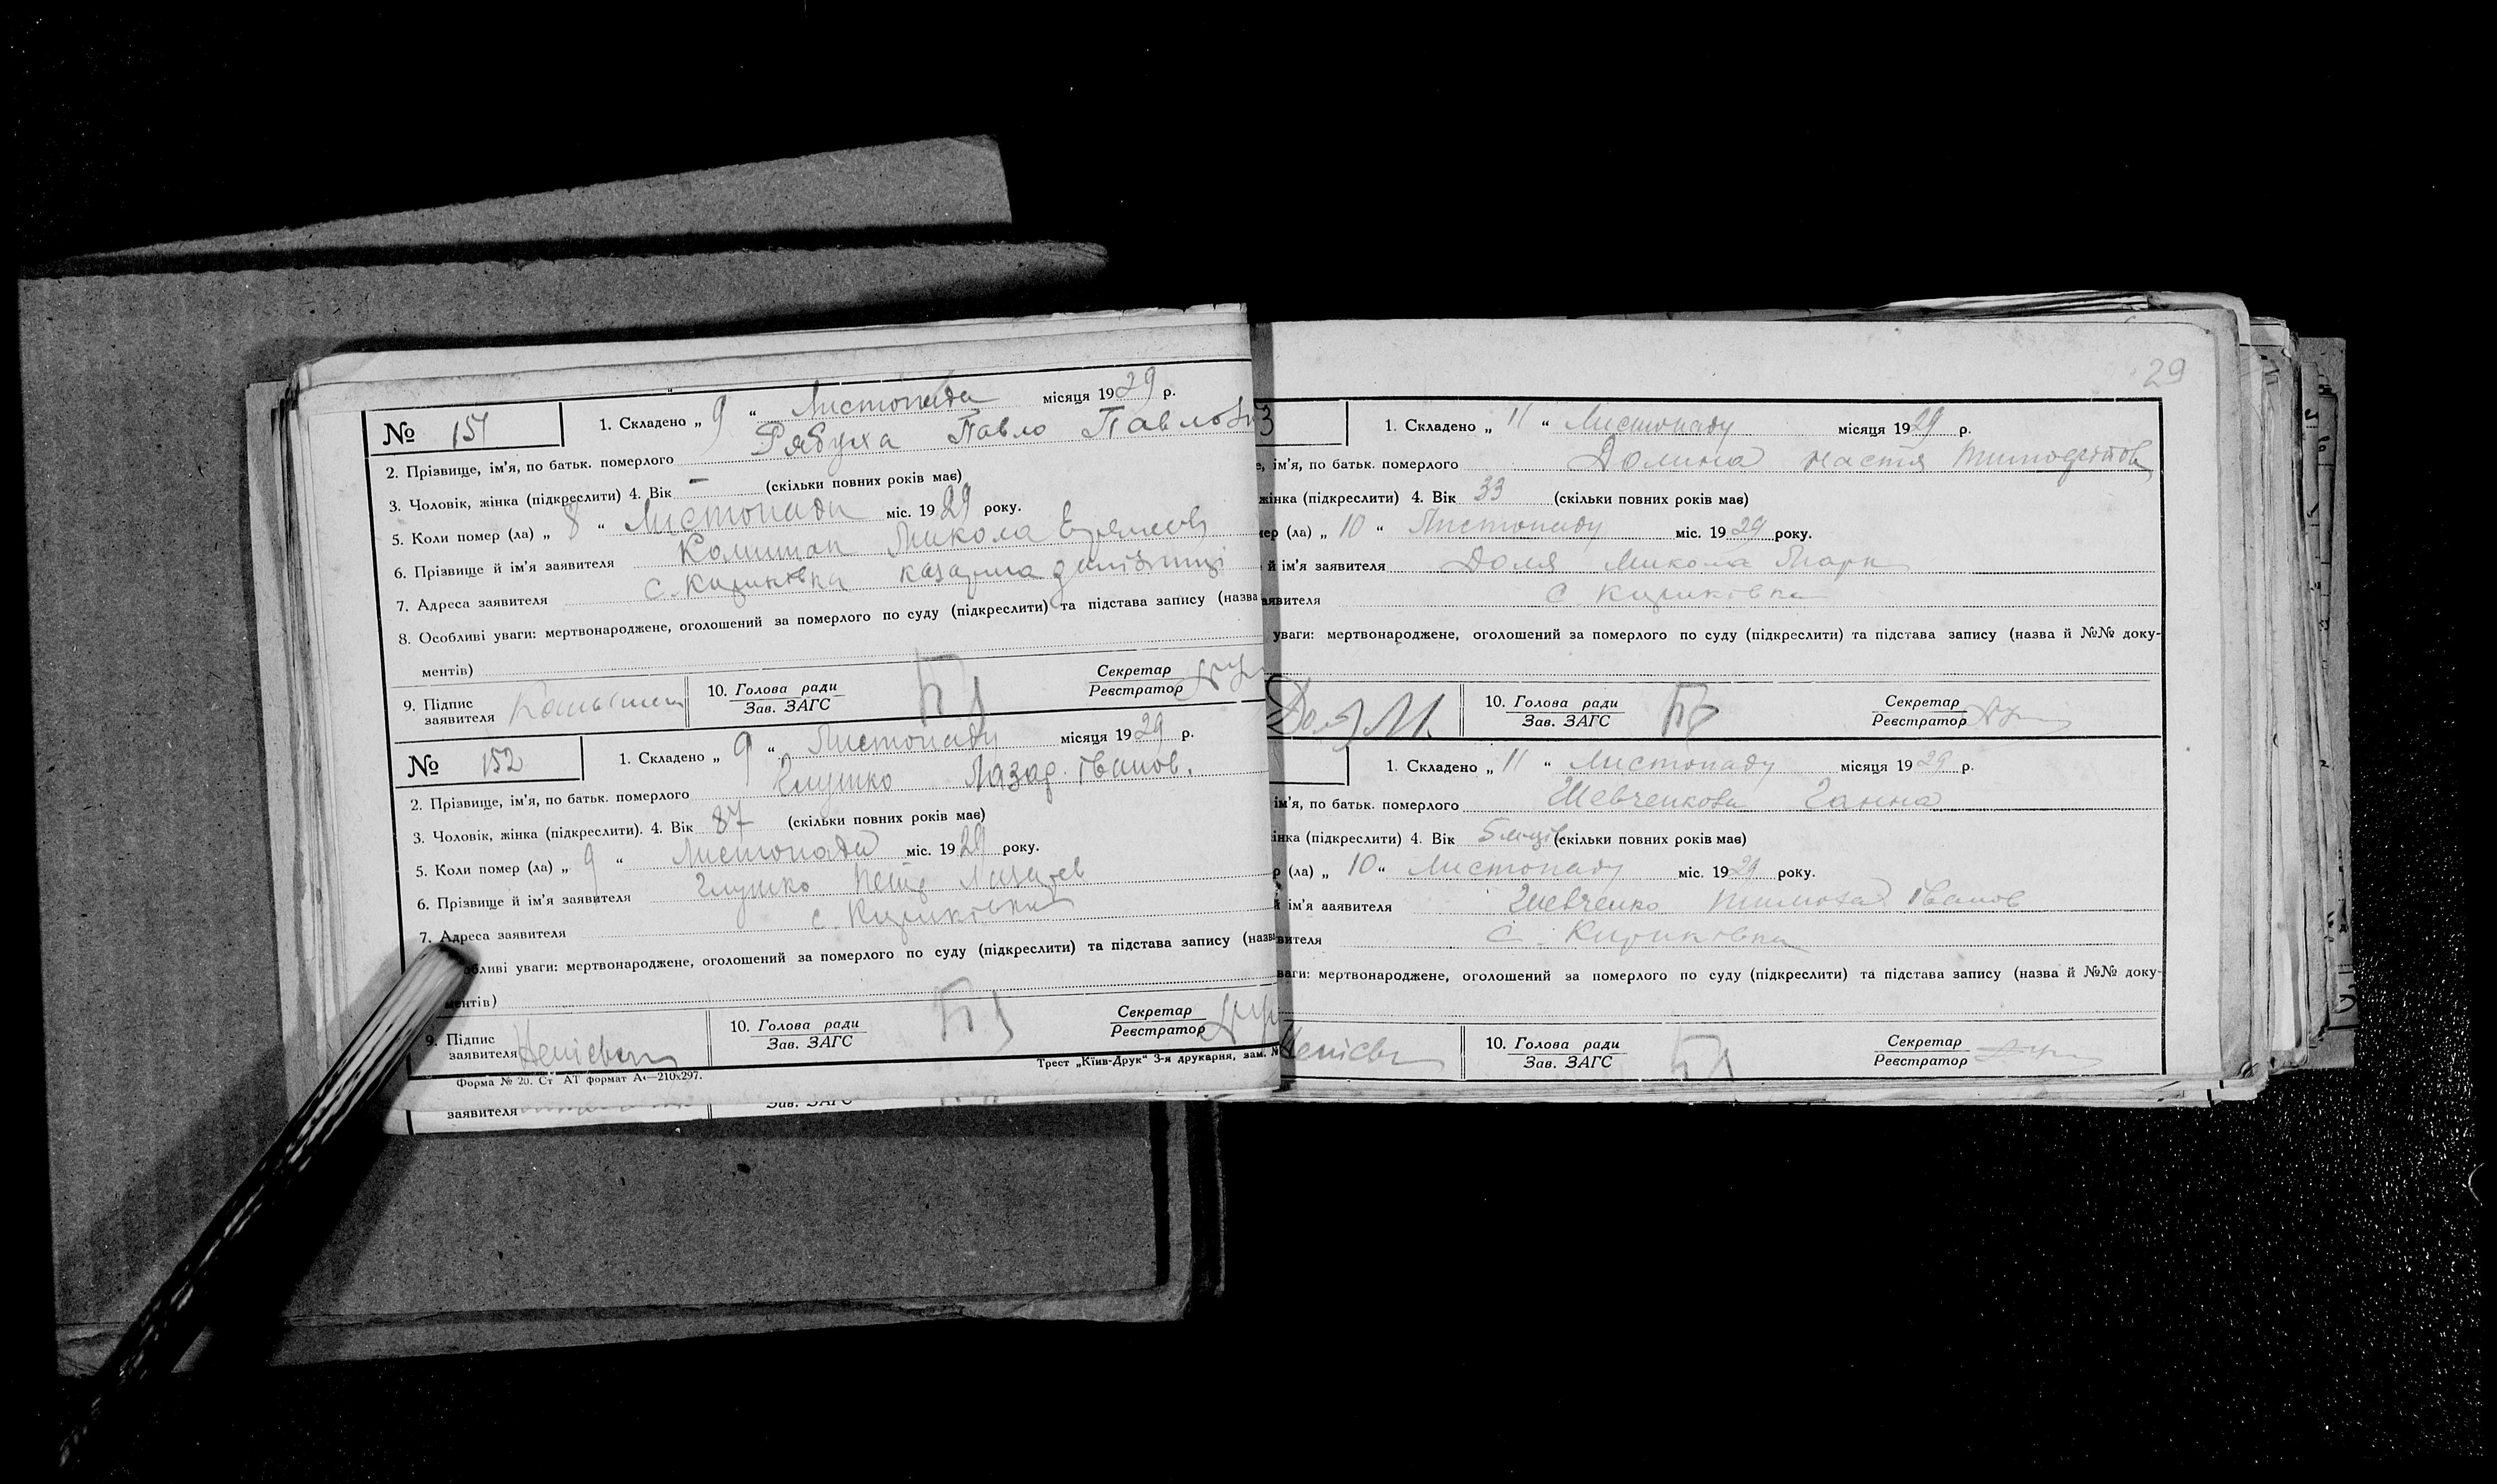 № 151
1. Складено „ 9 “ Листопада місяця 1929 р.
2. Прізвище, ім'я, по батьк. померлого Рябуха Павло Павлов
3. Чоловік, жінка (підкреслити) 4. Вік – (скільки повних років має)
5. Коли помер (ла) „ 8 “ Листопади міс. 1929 року.
6. Прізвище й ім'я заявителя Микола
7. Адреса заявителя с. Кириківка казарма
8. Особливі уваги: мертвонароджене, оголошений за померлого по суду (підкреслити) та підстава запису (назва
ментів)
9. Підпис
заявителя
10. Голова ради
Зав. ЗАГС
Секретар
Реєстратор
№ 152
1. Складено „ 9 “ Листопади місяця 1929 р.
2. Прізвище, ім'я, по батьк. померлого Глушко Лазар Іванов.
3. Чоловік, жінка (підкреслити). 4. Вік 87 (скільки повних років має)
5. Коли помер (ла) „ 9 “ Листопада міс. 1929 року.
6. Прізвище й ім'я заявителя Глушко Петр Лазарев
7. Адреса заявителя с. Кириківка
обливі уваги: мертвонароджене, оголошений за померлого по суду (підкреслити) та підстава запису (назва
ментів)
9. Підпис
заявителя
10. Голова ради
Зав. ЗАГС
Секретар
Реєстратор
Форма № 20. Ст АТ формат А4—210х297.
Трест „Київ-Друк“ 3-я друкарня, зам. №
заявителя
Зав. ЗАГС
29
3
1. Складено „ 11 “ Листопаду місяця 1929 р.
е, ім'я, по батьк. померлого Долина Настя Тимофіїов
жінка (підкреслити) 4. Вік 33 (скільки повних років має)
мер (ла) „ 10 “ Листопаду міс. 1929 року.
й ім'я заявителя Доля Микола Марк
аявителя С. Кириковка
уваги: мертвонароджене, оголошений за померлого по суду (підкреслити) та підстава запису (назва й №№ доку-
Доля М.
10. Голова ради
Зав. ЗАГС
Секретар
Реєстратор
1. Складено „ 11 “ Листопаду місяця 1929 р.
ім'я, по батьк. померлого Шевченкова Ганна
інка (підкреслити) 4. Вік 5 місців (скільки повних років має)
р (ла) „ 10 “ Листопаду міс. 1929 року.
й ім'я заявителя Шевченко Тимоха Іванов
вителя С. Кириковка
ваги: мертвонароджене, оголошений за померлого по суду (підкреслити) та підстава запису (назва й №№ доку-
10. Голова ради
Зав. ЗАГС
Секретар
Реєстратор